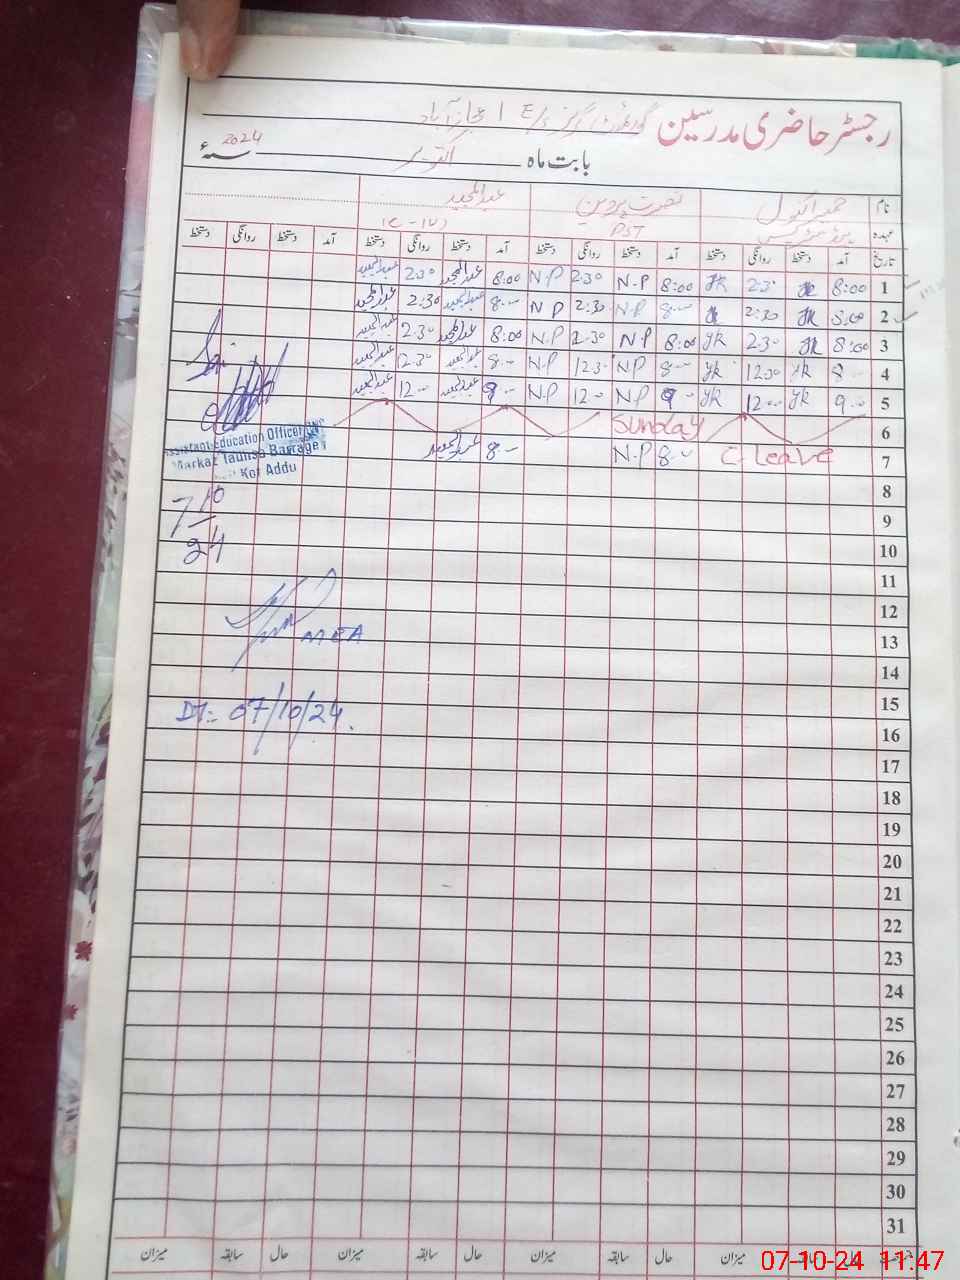 رجسٹر حاضری مدرسین گورنمنٹ گرلز E/S
بابت ماہ اکتوبر 2024 سنہء
نام نصرت پروین عبدالمجید
عہدہ PST
تاریخ آمد دستخط روانگی دستخط آمد دستخط روانگی دستخط آمد دستخط روانگی دستخط آمد دستخط روانگی دستخط
1 8:00 2:30 8:00 N.P 2:30 N.P 8:00 عبدالمجید 2:30 عبدالمجید
2 8:00 2:30 8-- N.P 2:30 N P 8-- عبدالمجید 2:30 عبدالمجید
3 8:00 2:30 8:00 N.P 2:30 N.P 8:00 عبدالمجید 2:30 عبدالمجید
4 8-- 12:30 8-- N.P 12:30 N.P 8-- عبدالمجید 12:30 عبدالمجید
5 9-- 12-- 9-- N.P 12-- N.P 9-- عبدالمجید 12-- عبدالمجید
6 Sunday
7 C-Leave 8-- N.P 8-- عبدالمجید
Assistant Education Officer
Markaz Taunsa Barrage
Kot Addu
7/10
24
8
9
10
11
12
13
MEA
14
15
DT:- 07/10/24.
16
17
18
19
20
21
22
23
24
25
26
27
28
29
30
31
حال سابقہ میزان حال سابقہ میزان حال سابقہ میزان حال سابقہ میزان
07-10-24 11:47